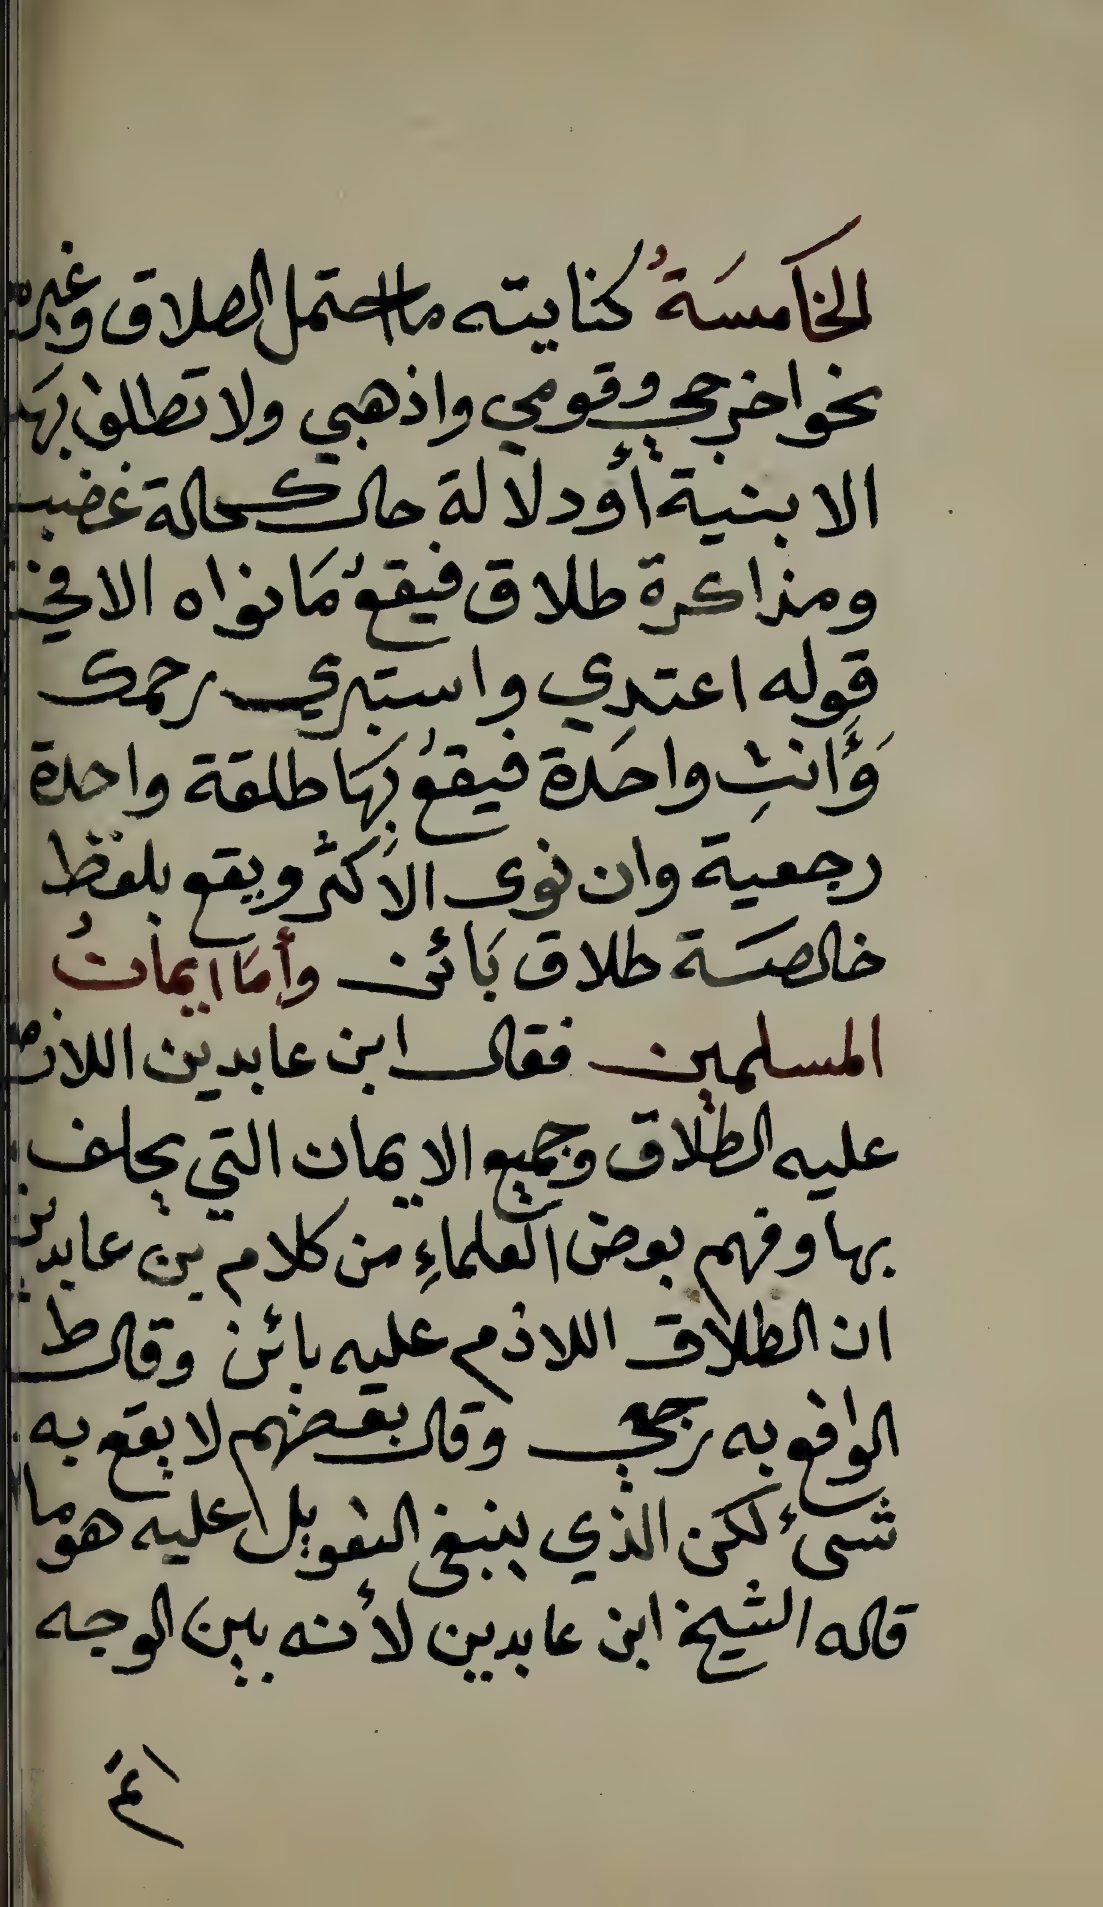 الخامسَةُ كنايته ما احتمل الطلاق وغيره
نحو اخرجي وقومي واذهبي ولا تطلق بهَا
الا بنية أو دلالة حال كحالة غضب
ومذاكرة طلاق فيقعُ مَا نواه الا في
قوله اعتدِي واستبري رحمك
وَأنتِ واحدَة فيقعُ بهَا طلقة واحدة
رجعية وان نوى الأكثر ويقع بلفظ
خالصَة طلاق بَائن وأمَا ايمانُ
المسلمين فقال ابن عابدين اللازم
عليه الطلاق وجميع الايمان التي يحلف
بها وفهم بعض العلماءِ من كلام بن عابدين
ان الطلاق اللازم عليه بائن وقال ط
الواقع به رجعي وقال بعضهم لا يقع به
شىء لكن الذي ينبغي التعويل عليه هو ما
قاله الشيخ ابن عابدين لأنه بين الوجه